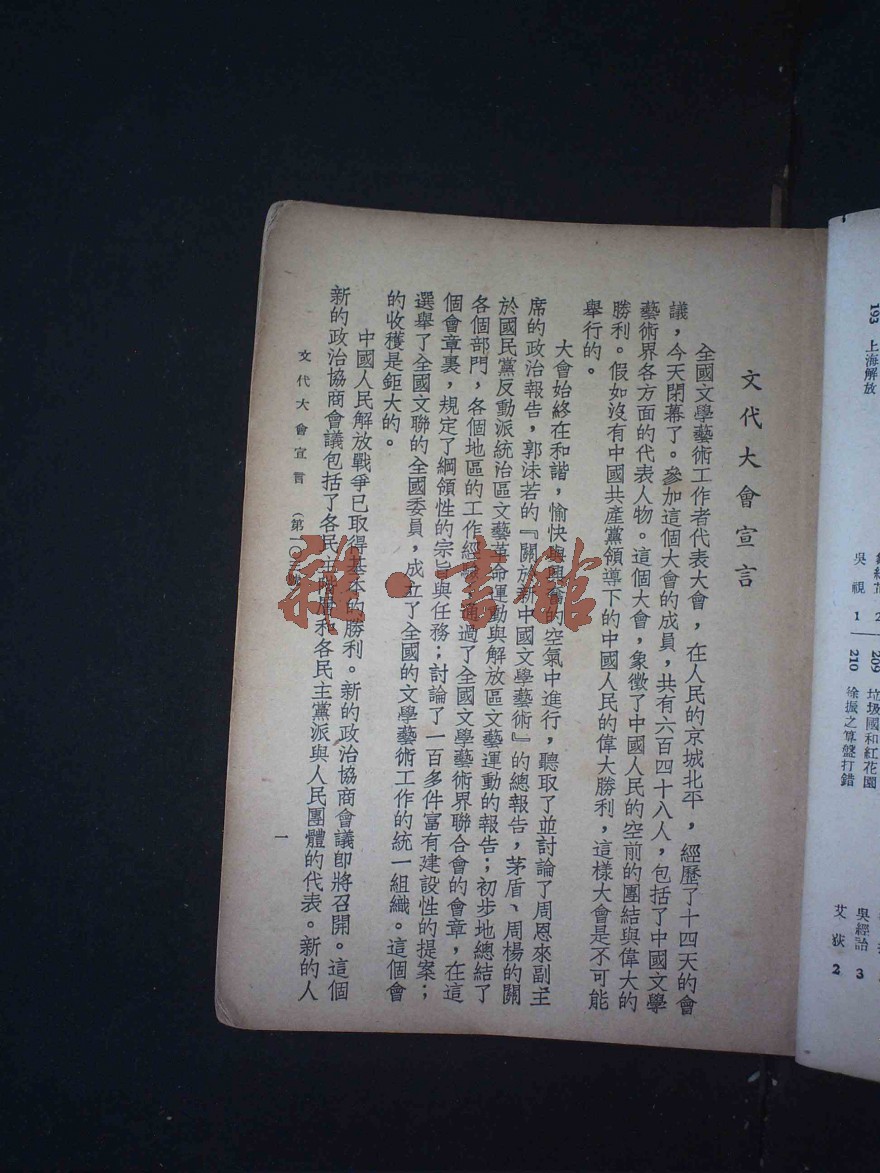 文代大會宣言
全國文學藝術工作者代表大會，在人民的京城北平，經歷了十四天的會
議，今天閉幕了。參加這個大會的成員，共有六百四十八人，包括了中國文學
藝術界各方面的代表人物。這個大會，象徵了中國人民的空前的團結與偉大的
勝利。假如沒有中國共產黨領導下的中國人民的偉大勝利，這樣大會是不可能
舉行的。
大會始終在和諧，愉快與興奮的空氣中進行，聽取了並討論了周恩來副主
席的政治報告，郭沫若的『關於新中國文學藝術』的總報告，茅盾、周楊的關
於國民黨反動派統治區文藝革命運動與解放區文藝運動的報告；初步地總結了
各個部門，各個地區的工作經驗，通過了全國文學藝術界聯合會的會章，在這
個會章裏，規定了綱領性的宗旨與任務；討論了一百多件富有建設性的提案；
選舉了全國文聯的全國委員，成立了全國的文學藝術工作的統一組織。這個會
的收穫是鉅大的。
中國人民解放戰爭已取得基本的勝利。新的政治協商會議即將召開。這個
新的政治協商會議包括了各民主階層和各民主黨派與人民團體的代表。新的人
文代大會宣言 （第一〇
一
雜·書館
193 上海解放
吳視 1
210 徐振之算盤打錯
垃圾國和紅花園
吳經詒 3
艾荻 2